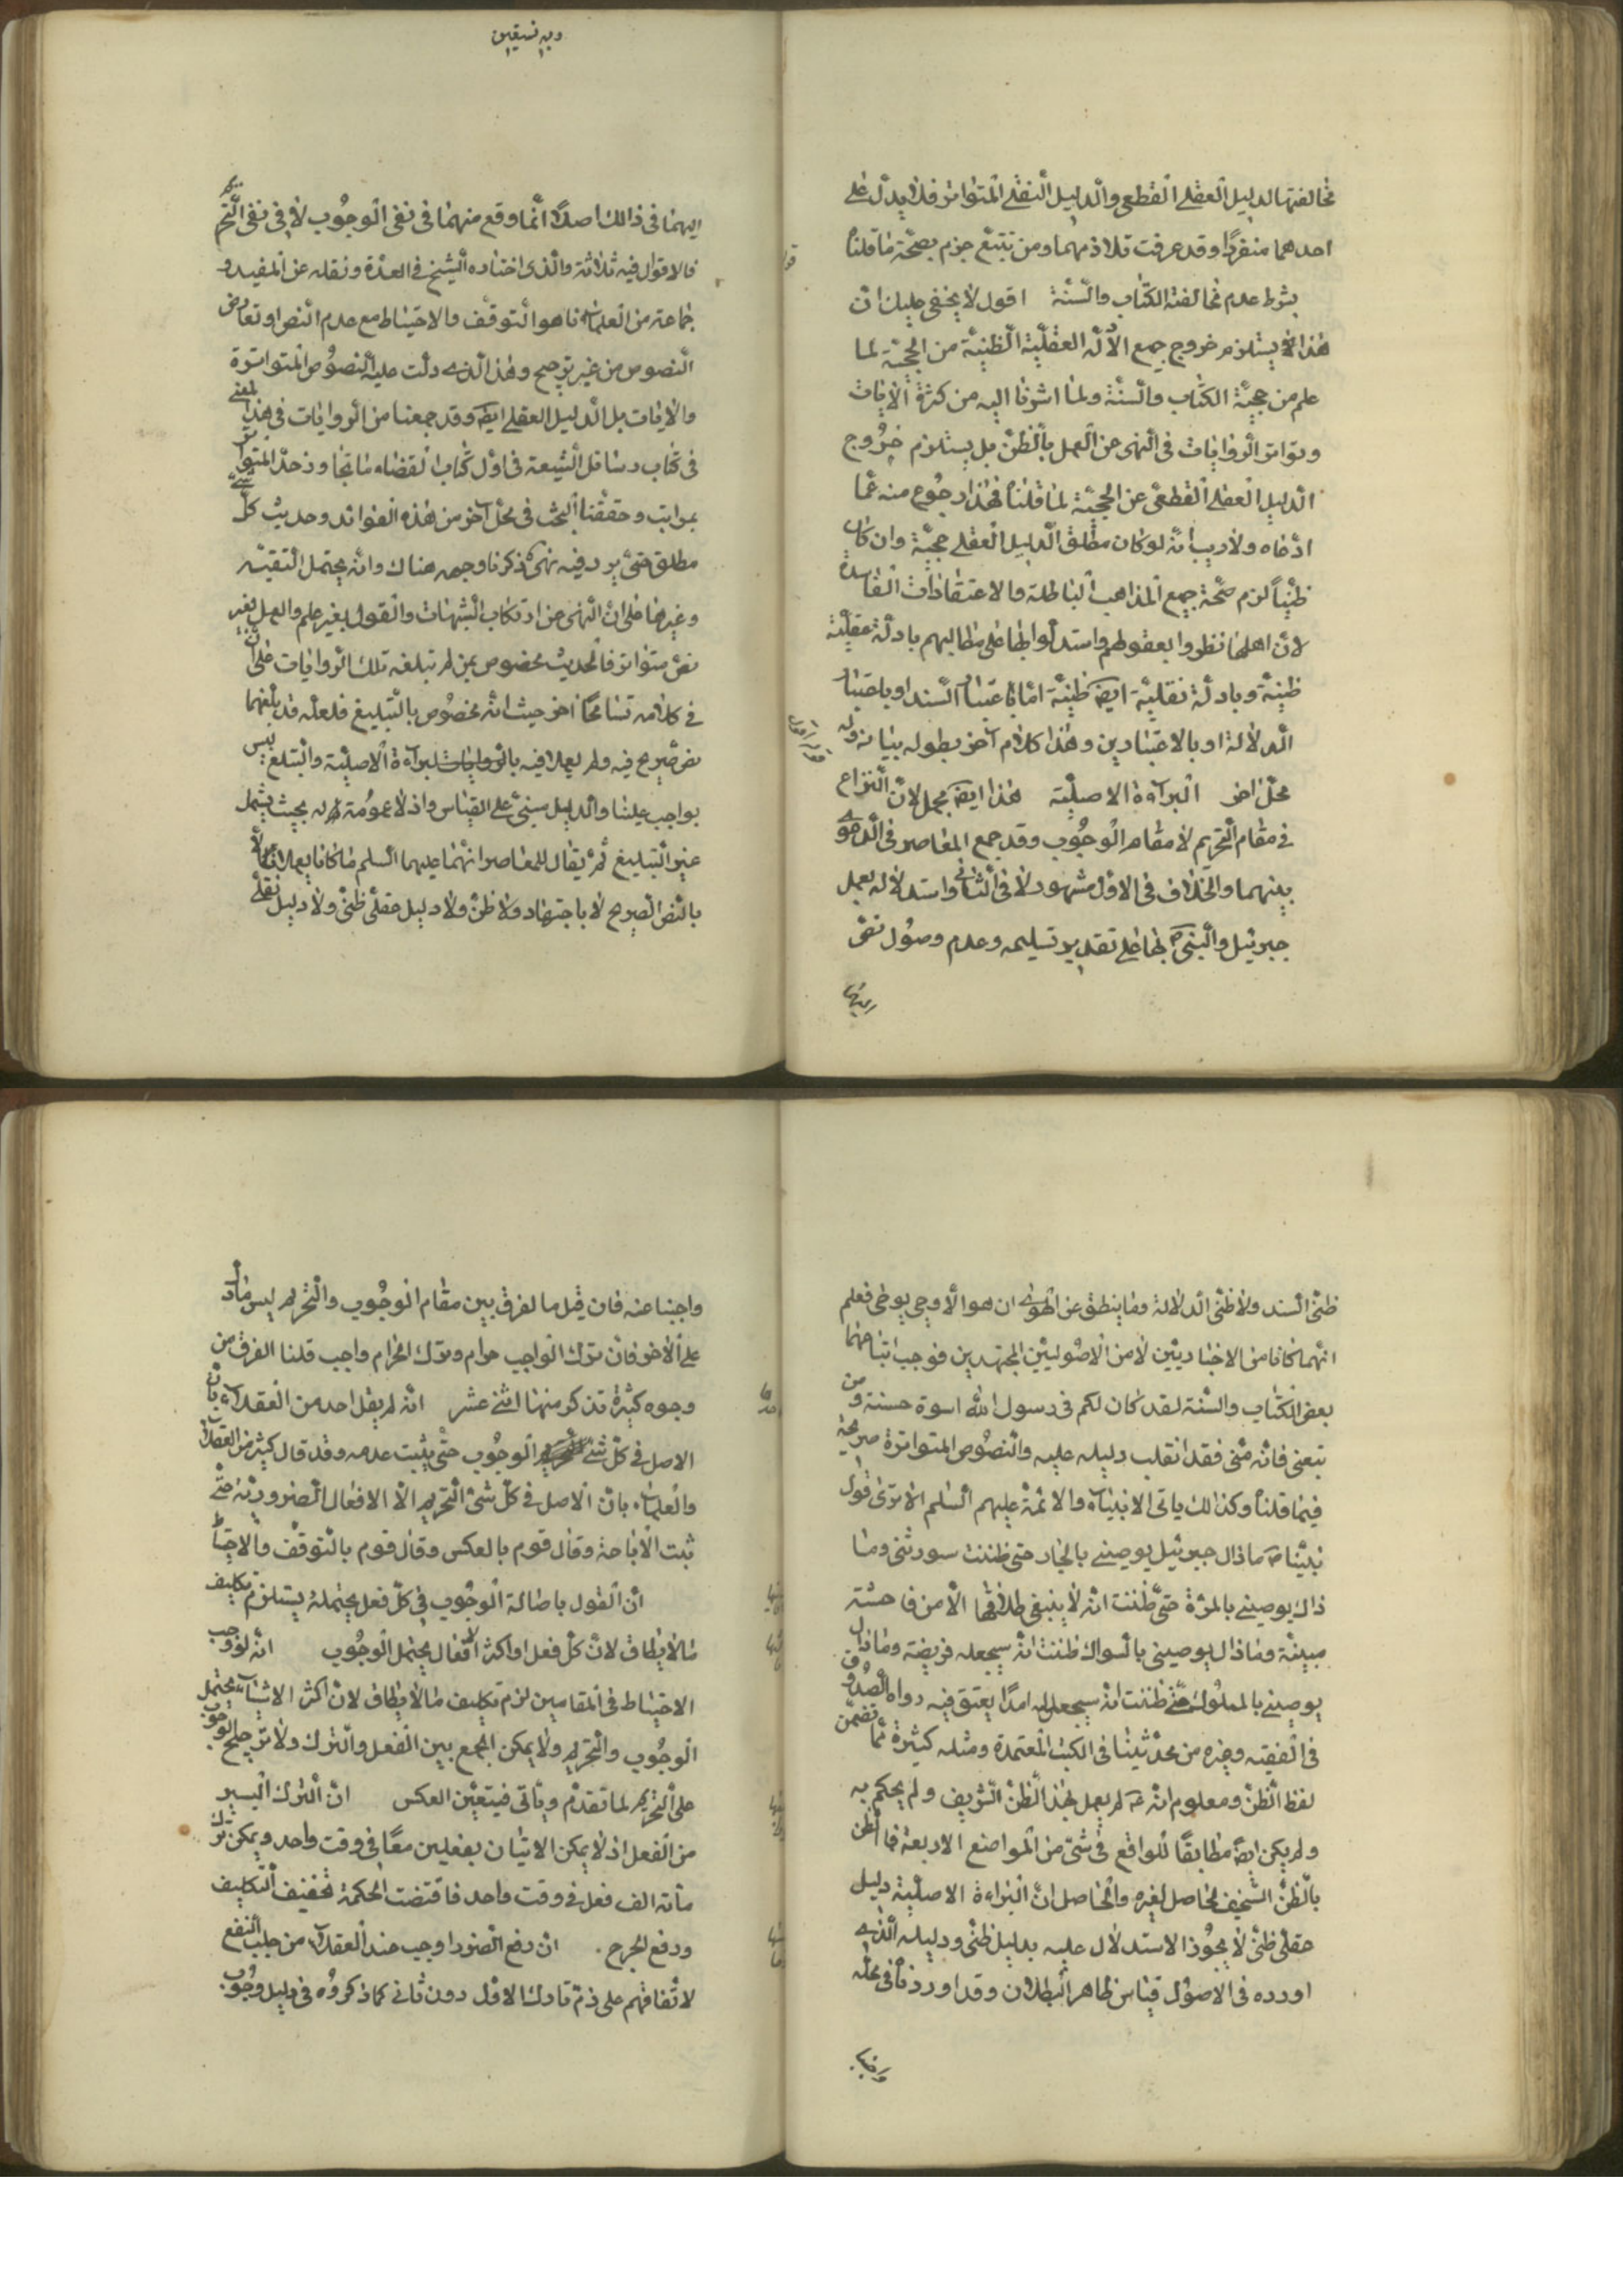 مخالفتها لدليل العقلي القطعي والدليل النقلي المتواتر فلا يدل على
احدهما منفردا وقد عرفت تلازمهما ومن تتبع جزم بصحة ما قلنا
بشرط عدم مخالفة الكتاب والسنة اقول لا يخفى عليك ان
هذا يستلزم خروج جميع الادلة العقلية الظنية من الحجية لما
علم من حجية الكتاب والسنة ولما اشرنا اليه من كثرة الايات
وتواتر الروايات في النهى عن العمل بالظن بل يستلزم خروج
الدليل العقلي القطعي عن الحجية لما قلنا فهذا رجوع منه عما
ادعاه ولا ريب انه لو كان مطلق الدليل العقلي حجية وان كان
ظنيا لزم صحة جميع المذاهب الباطلة والاعتقادات الفاسدة
لان اهلها نظروا بعقولهم واستدلوا بها على مطالبهم بادلة عقلية
ظنية وبادلة نقلية ايضا ظنية اما باعتبار السند او باعتبار
الدلالة او بالاعتبارين وهذا كلام آخر يطول بيانه وله
محل اخر البراءة الاصلية هذا ايضا مجمل لان النزاع
في مقام التحريم لا مقام الوجوب وقد جمع المعاصر في الدعوى
بينهما والخلاف في الاول مشهور لا في الثاني واستدلاله بعمل
جبرئيل والنبي ص بها على تقدير تسليمه وعدم وصول نص
اليهما
وبه نستعين
اليهما في ذلك اصلا انما وقع منهما في نفى الوجوب لا في نفى التحريم
فالاقوال فيه ثلاثة والذي اختاره الشيخ في العدة ونقله عن المفيد و
جماعة من العلماء انما هو التوقف والاحتياط مع عدم النص او تعارض
النصوص من غير ترجيح وهذا الذي دلت عليه النصوص المتواترة
والايات بل الدليل العقلي ايضا وقد جمعنا من الروايات في هذا المعنى
في كتاب وسائل الشيعة في اول كتاب القضاء ما تجاوز حد المتواتر
بمراتب وحققنا البحث في محل آخر من هذه الفوائد وحديث كل شيء
مطلق حتى يرد فيه نهى ذكرنا وجهه هناك وانه يحتمل التقية
وغيرها على ان النهى عن ارتكاب الشبهات والقول بغير علم والعمل بغير
نص متواتر فالحديث مخصوص بمن لم تبلغه تلك الروايات على ان
في كلامه تسامحا اخر حيث انه مخصوص بالتبليغ فلعله قد بلغهما
نص صريح فيه ولم يعملا فيه بالبراءة الاصلية والتبليغ ليس
بواجب علينا والدليل مبني على القياس واذ لا عموم له بحيث يشمل
غير التبليغ ثم يقال للمعاصر انهما عليهما السلم ما كانا يعملان الا
بالنص الصريح لا باجتهاد ولا ظن ولا دليل عقلي ظني ولا دليل نقلي
ظني السند ولا ظني الدلالة وما ينطق عن الهوى ان هو الا وحي يوحى فعلم
انهما كانا من الاخباريين لا من الاصوليين المجتهدين فوجب اتباعهما
بعض الكتاب والسنة لقد كان لكم في رسول الله اسوة حسنة ومن
تبعني فانه مني فقد انقلب دليله عليه والنصوص المتواترة صريحة
فيما قلنا وكذلك باقى الانبياء والائمة عليهم السلم الا ترى قول
نبينا ص ما زال جبرئيل يوصيني بالجار حتى ظننت سيورثنى وما
زال يوصيني بالمرأة حتى ظننت انه لا ينبغي طلاقها الا من فاحشة
مبينة وما زال يوصيني بالسواك ظننت انه سيجعله فريضة وما زال
يوصيني بالمملوك حتى ظننت انه سيجعل له امدا يعتق فيه رواه الصدوق
في الفقيه وغيره من محدثينا في الكتب المعتمدة ومثله كثيرة مما تضمن
لفظ الظن ومعلوم انه ص لم يعمل بهذا الظن الشريف ولم يحكم به
ولم يكن ايضا مطابقا للواقع في شئ من المواضع الاربعة فما الظن
بالظن السخيف الحاصل لغيره والحاصل ان البراءة الاصلية دليل
عقلي ظني لا يجوز الاستدلال عليه بدليل ظني ودليله الذي
اورده في الاصول قياس ظاهر البطلان وقد اوردنا في محله
واجبنا
واجبنا عنه فان قيل ما الفرق بين مقام الوجوب والتحريم ليس ما دل
على الاخر فان ترك الواجب حرام وترك الحرام واجب قلنا الفرق من
وجوه كثيرة نذكر منها اثنى عشر انه لم يقل احد من العقلاء بان
الاصل في كل شئ الوجوب حتى يثبت عدمه وقد قال كثير من العقلاء
والعلماء بان الاصل في كل شئ التحريم الا الافعال الضرورية حتى
ثبت الاباحة وقال قوم بالعكس وقال قوم بالتوقف والاحتياط
ان القول باصالة الوجوب في كل فعل يحتمله يستلزم تكليف
ما لا يطاق لان كل فعل او اكثر الافعال يحتمل الوجوب انه لو وجب
الاحتياط في المقامين لزم تكليف ما لا يطاق لان اكثر الاشياء يحتمل
الوجوب والتحريم ولا يمكن الجمع بين الفعل والترك ولا ترجيح الوجوب
على التحريم لما تقدم وياتي فيتعين العكس ان الترك ايسر
من الفعل اذ لا يمكن الاتيان بفعلين معا في وقت واحد ويمكن ترك
مأتة الف فعل في وقت واحد فاقتضت الحكمة تخفيف التكليف
ودفع الحرج . ان دفع الضرر اوجب عند العقلاء من جلب النفع
لاتفاقهم على ذم تارك الاول دون ثاني كما ذكروه في دليل وجوب